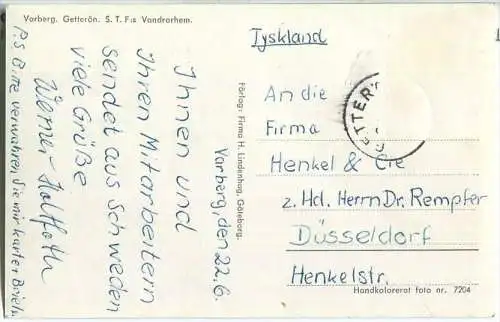 Varberg. Getterön. S. T. F:s Vandrarhem.
Varberg, den 22.6.
Ihnen und
Ihren Mitarbeitern
sendet aus Schweden
viele Grüße
Werner Holtfoth
P.S Bitte verwahren Sie mir Karte + Briefm.
Förlag: Firma H. Lindenhag, Göteborg.
Tyskland
GETTER
An die
Firma
Henkel & Cie
z. Hd. Herrn Dr. Rempfer
Düsseldorf
Henkelstr.
Handkolorerat foto nr. 7204